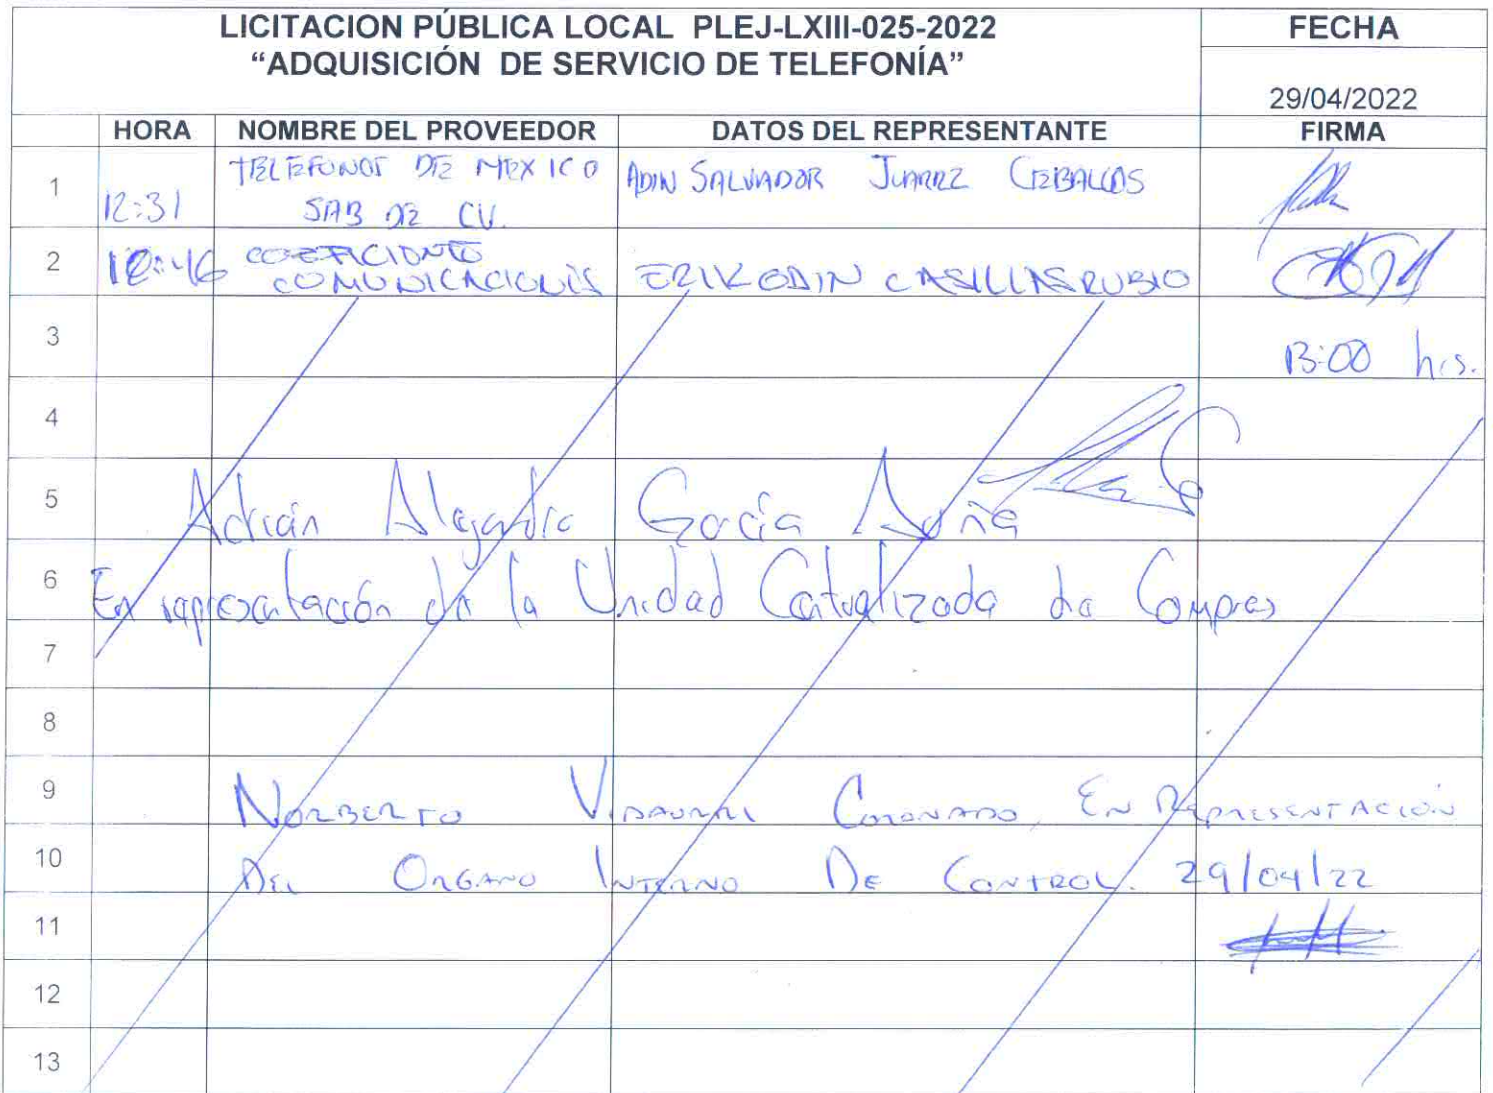 LICITACION PÚBLICA LOCAL PLEJ-LXIII-025-2022
“ADQUISICIÓN DE SERVICIO DE TELEFONÍA”
FECHA
29/04/2022
HORA NOMBRE DEL PROVEEDOR DATOS DEL REPRESENTANTE FIRMA
1 12:31 TELEFONOS DE MEXICO SAB DE CV. ADIN SALVADOR JUAREZ CEBALLOS
2 12:46 COEFICIENTE COMUNICACIONES ERIK ODIN CASILLAS RUBIO
3 13:00 hrs.
4
5 Adrián Alejandro García
6 En representación de la Unidad Centralizada de Compras
7
8
9 NORBERTO VIDAURRI CORONADO, EN REPRESENTACIÓN
10 DEL ORGANO INTERNO DE CONTROL. 29/04/22
11
12
13